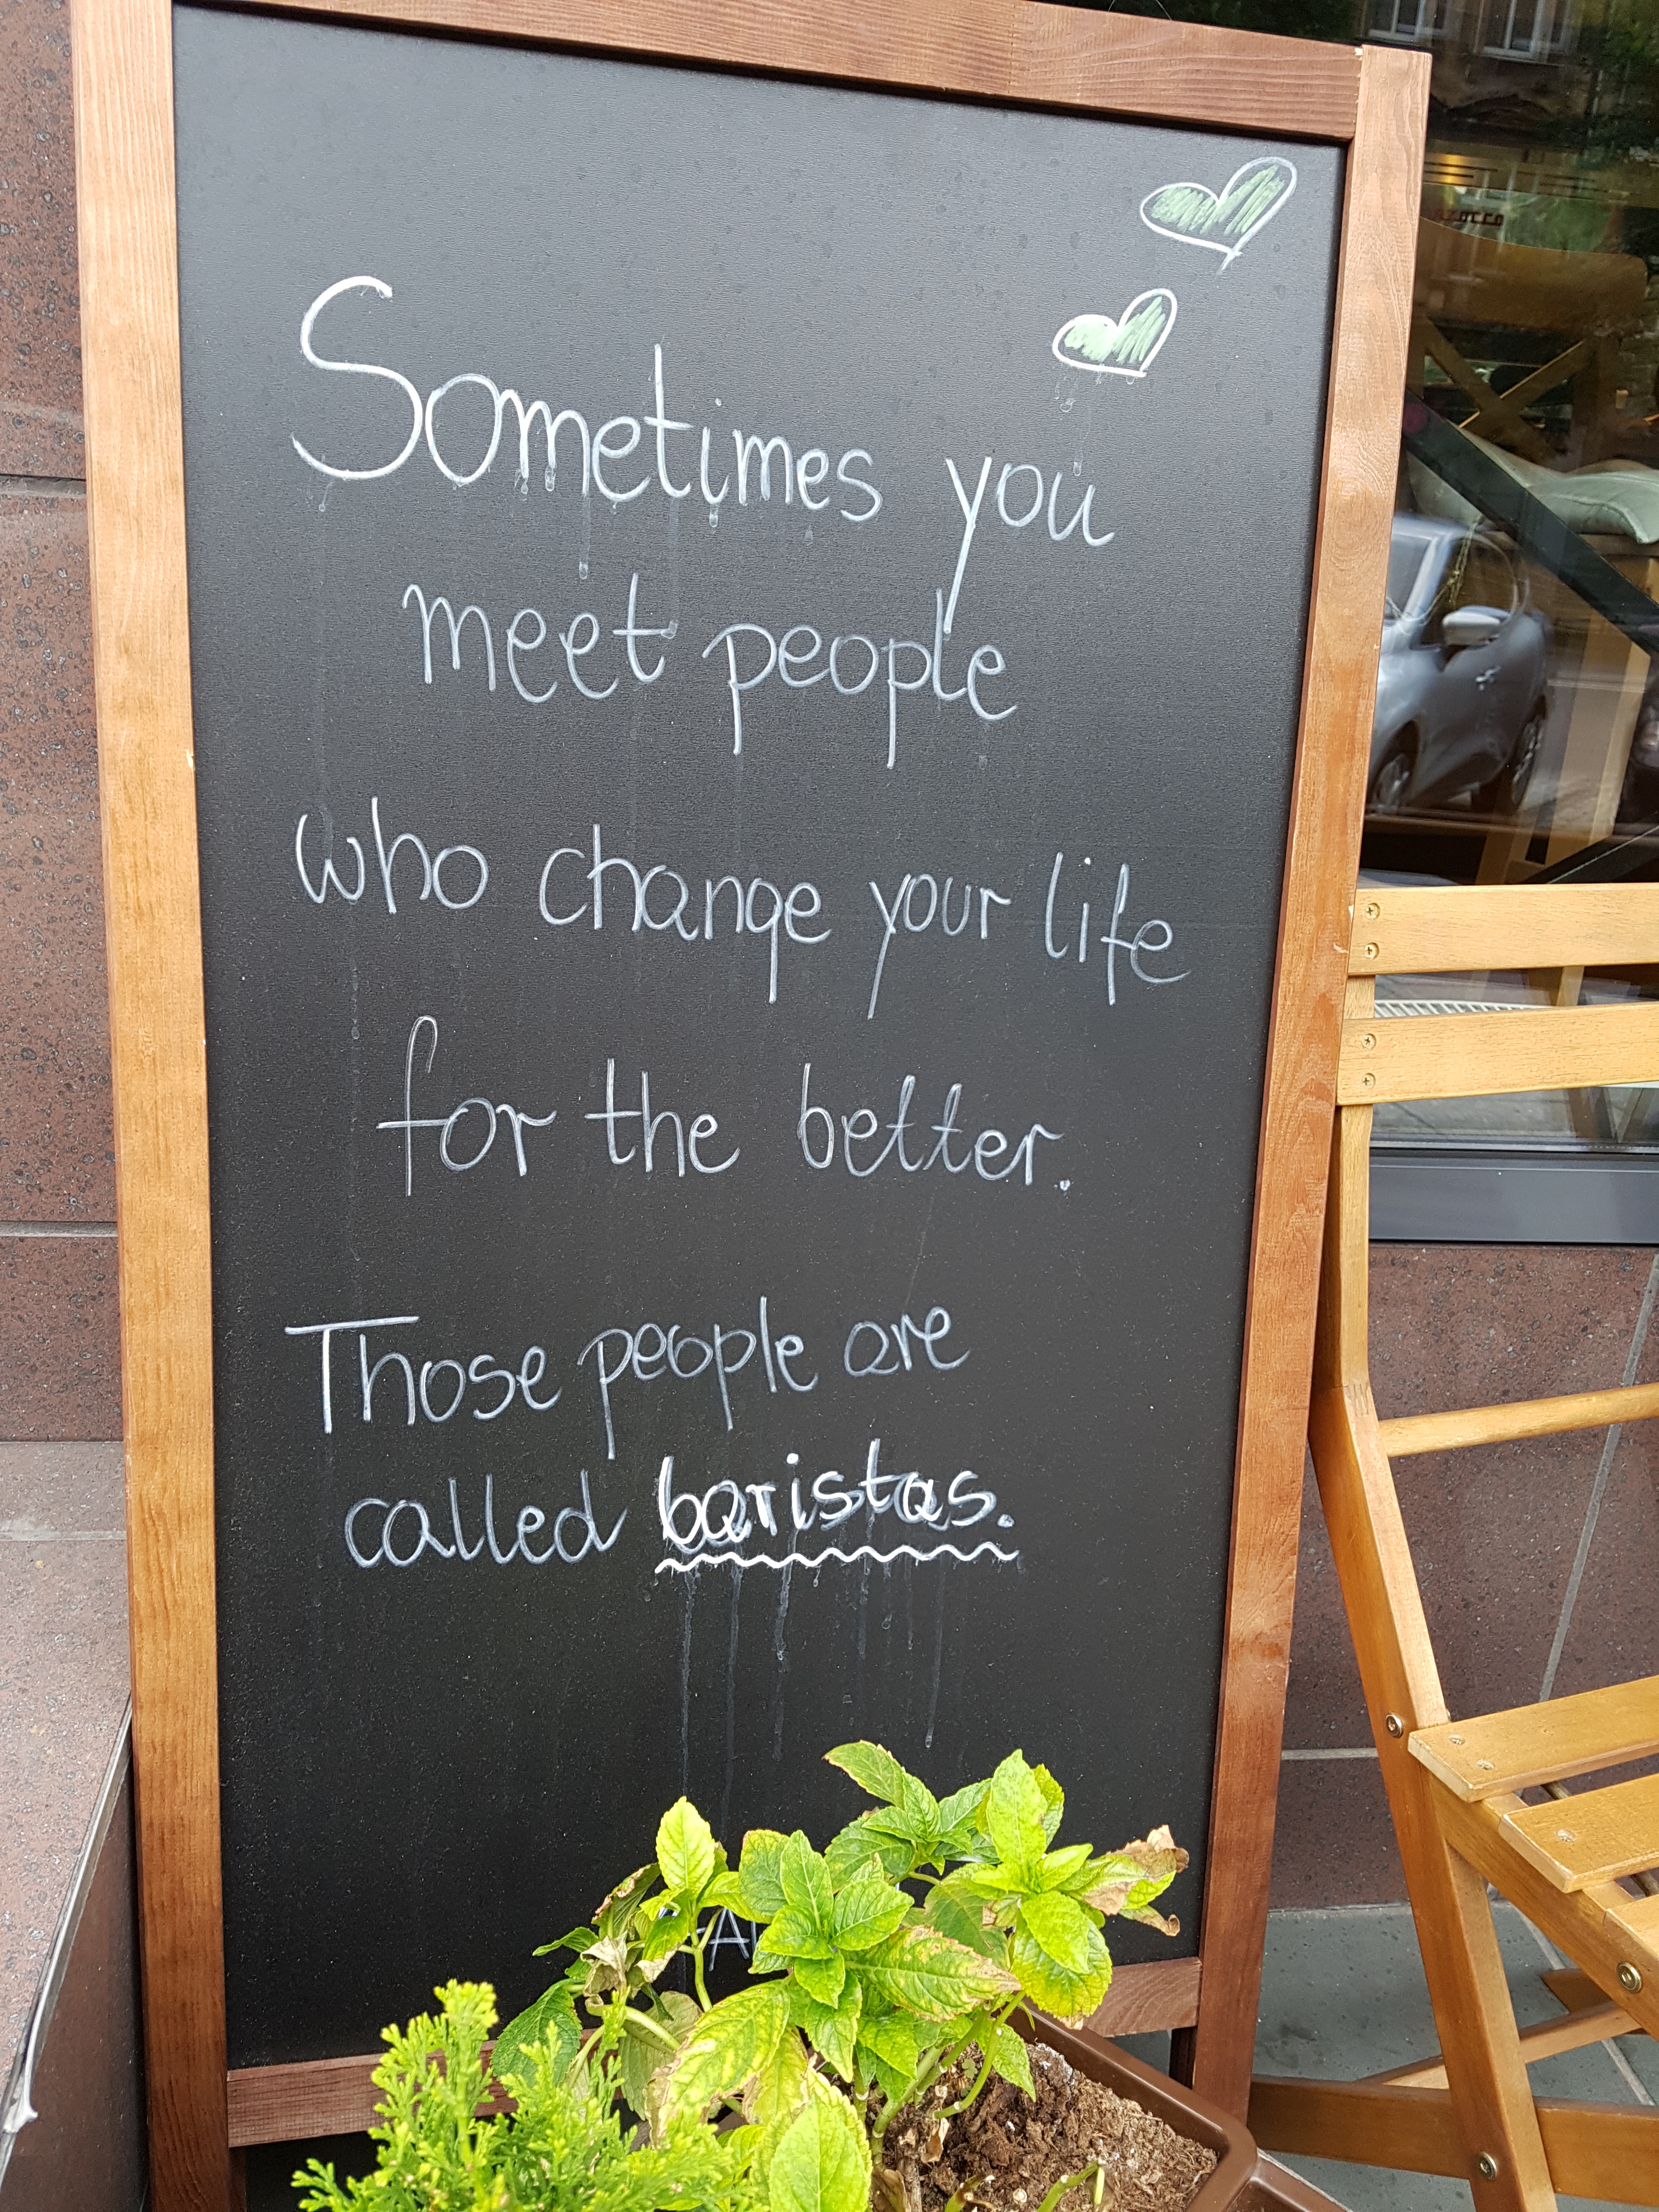 Sometimes you
meet people
who change your life
for the better.
Those people are
called baristas.